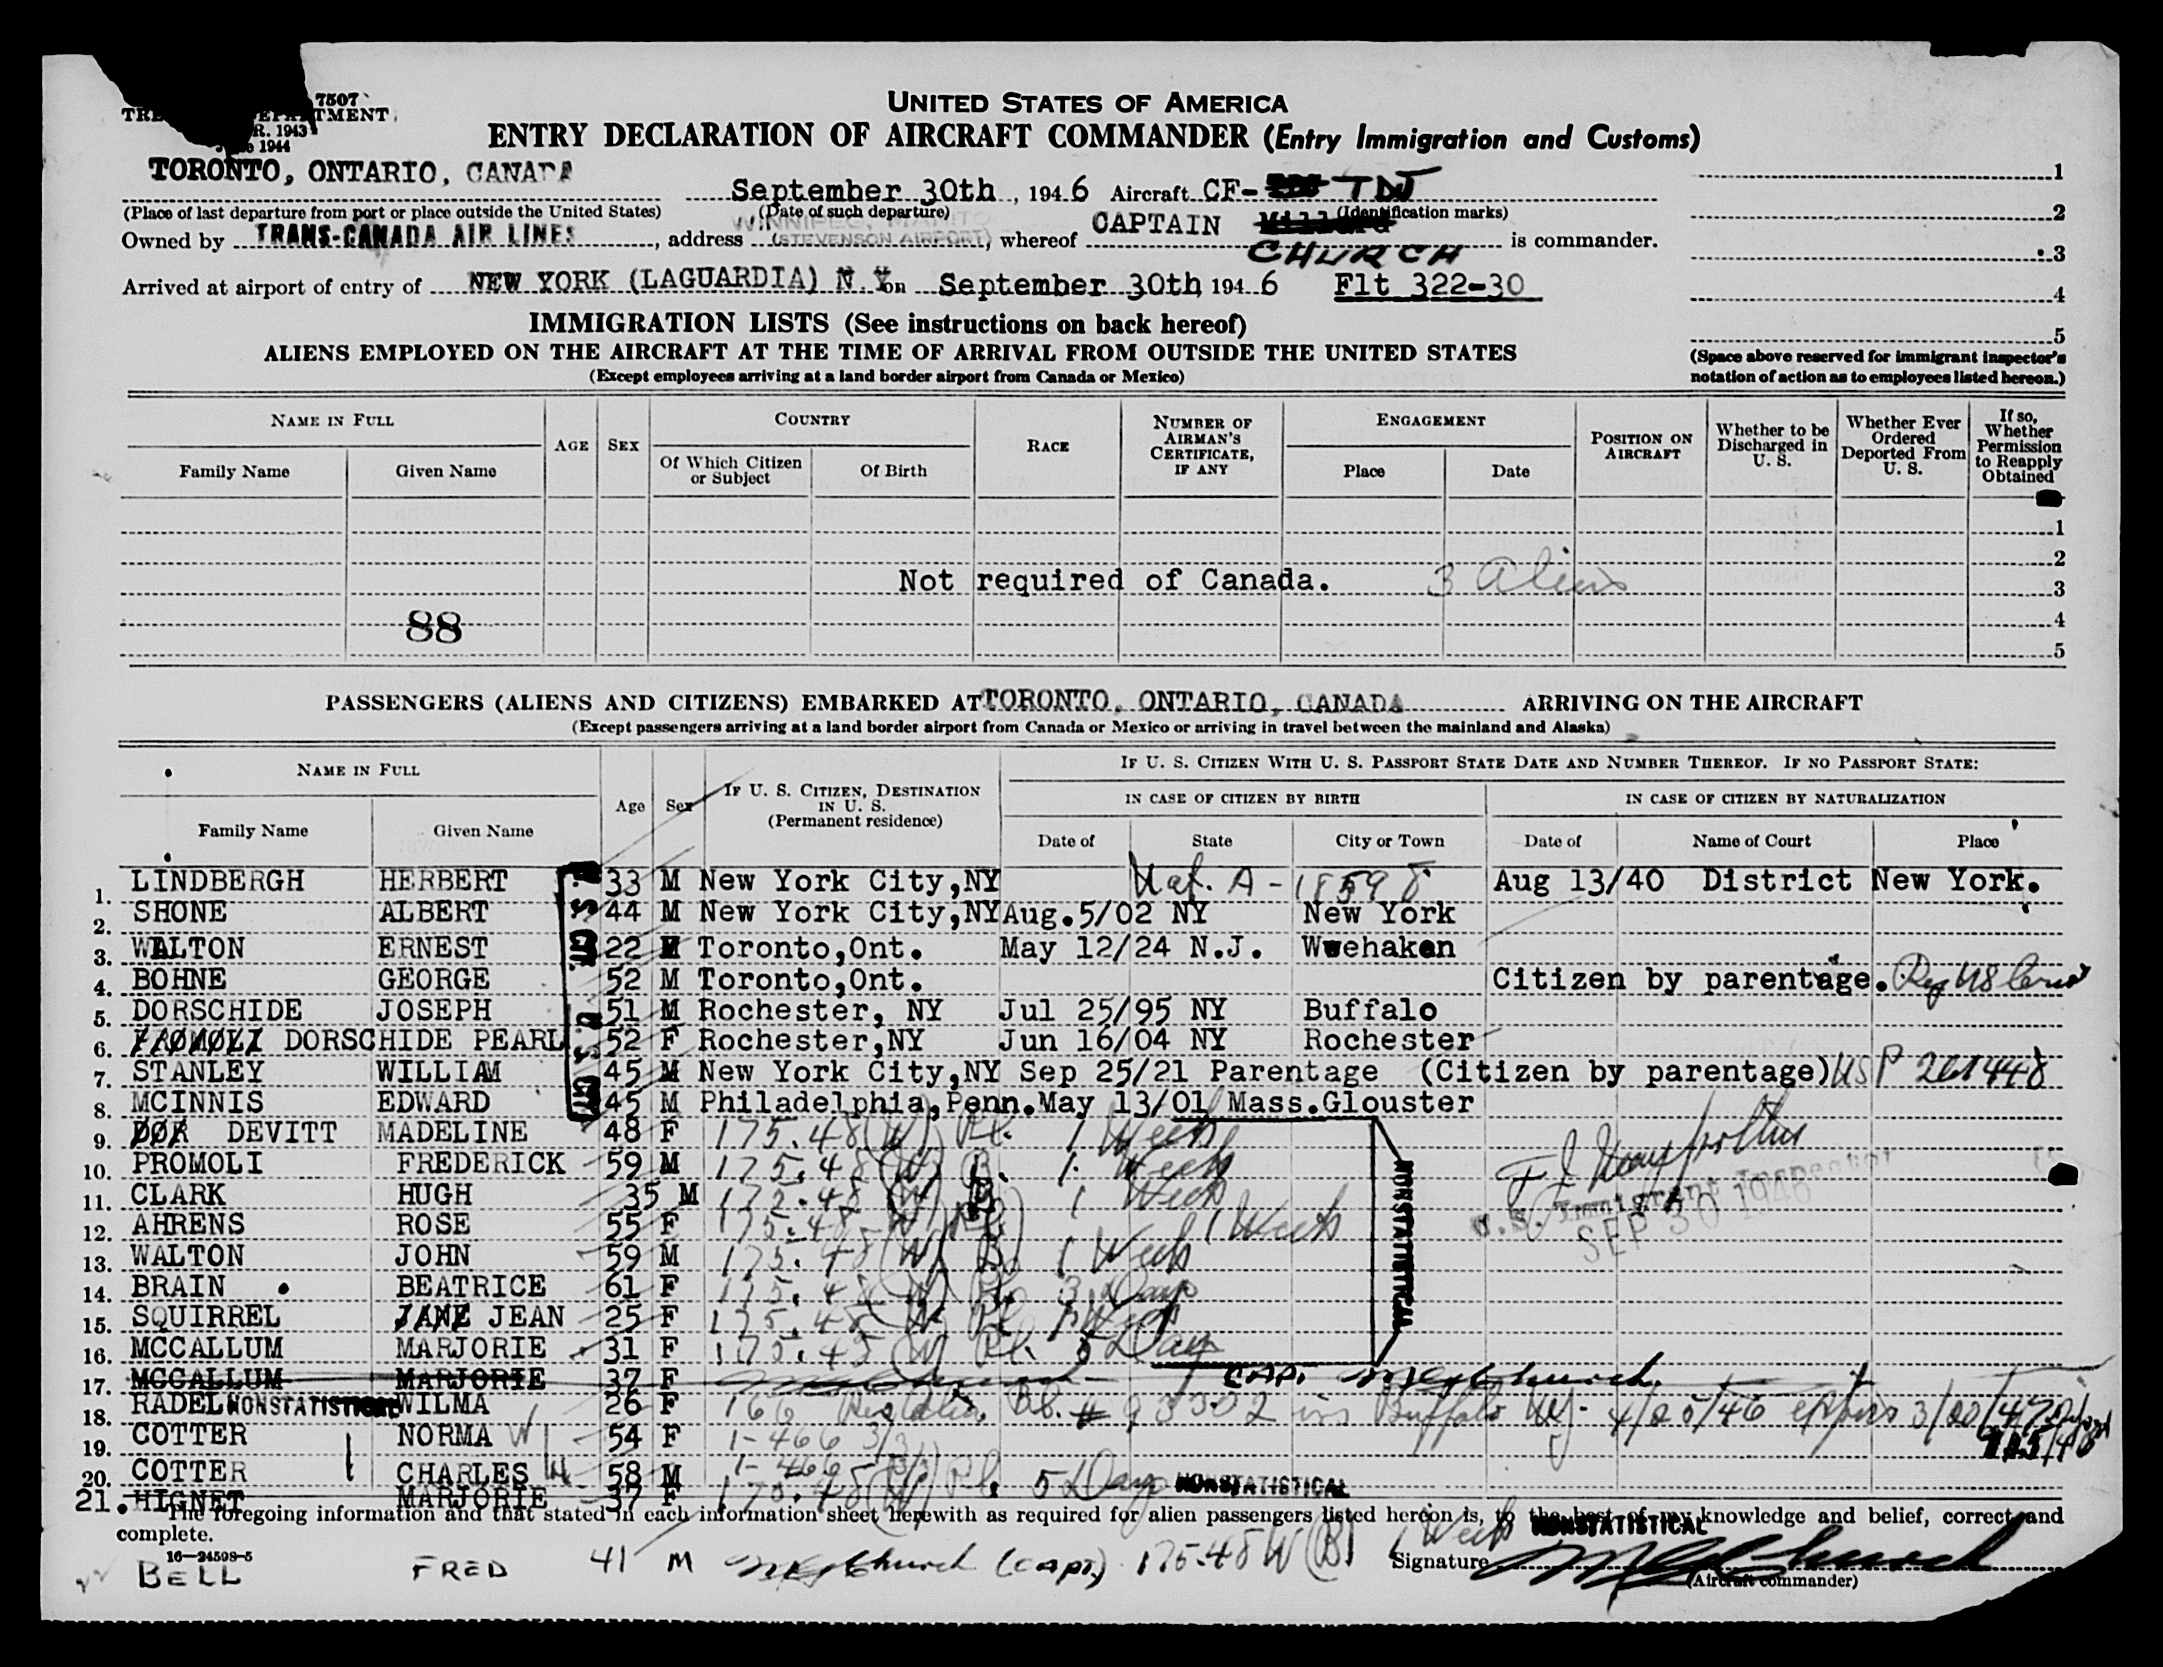 7507
TREASURY DEPARTMENT
R. 1943
1944
UNITED STATES OF AMERICA
ENTRY DECLARATION OF AIRCRAFT COMMANDER (Entry Immigration and Customs)
TORONTO, ONTARIO, CANADA
September 30th, 1946 Aircraft CF- TDJ
(Place of last departure from port or place outside the United States) (Date of such departure) (Identification marks)
WINNIPEG, MANITOBA
Owned by TRANS-CANADA AIR LINES, address (STEVENSON AIRPORT), whereof CAPTAIN CHURCH is commander.
Arrived at airport of entry of NEW YORK (LAGUARDIA) N.Y. on September 30th, 1946 Flt 322-30
1
2
3
4
5
(Space above reserved for immigrant inspector's notation of action as to employees listed hereon.)
IMMIGRATION LISTS (See instructions on back hereof)
ALIENS EMPLOYED ON THE AIRCRAFT AT THE TIME OF ARRIVAL FROM OUTSIDE THE UNITED STATES
(Except employees arriving at a land border airport from Canada or Mexico)
NAME IN FULL
Family Name Given Name
AGE SEX
COUNTRY
Of Which Citizen or Subject Of Birth
RACE
NUMBER OF AIRMAN'S CERTIFICATE, IF ANY
ENGAGEMENT
Place Date
POSITION ON AIRCRAFT
Whether to be Discharged in U. S.
Whether Ever Ordered Deported From U. S.
If so, Whether Permission to Reapply Obtained
1
2
Not required of Canada. 3 Aliens 3
88 4
5
PASSENGERS (ALIENS AND CITIZENS) EMBARKED AT TORONTO, ONTARIO, CANADA ARRIVING ON THE AIRCRAFT
(Except passengers arriving at a land border airport from Canada or Mexico or arriving in travel between the mainland and Alaska)
NAME IN FULL
Family Name Given Name
Age Sex
IF U. S. CITIZEN, DESTINATION IN U. S. (Permanent residence)
IF U. S. CITIZEN WITH U. S. PASSPORT STATE DATE AND NUMBER THEREOF. IF NO PASSPORT STATE:
IN CASE OF CITIZEN BY BIRTH
IN CASE OF CITIZEN BY NATURALIZATION
Date of State City or Town Date of Name of Court Place
1. LINDBERGH HERBERT 33 M New York City,NY Nat. A-18598 Aug 13/40 District New York.
2. SHONE ALBERT 44 M New York City,NY Aug.5/02 NY New York
3. WALTON ERNEST 22 M Toronto,Ont. May 12/24 N.J. Weehaken
4. BOHNE GEORGE 52 M Toronto,Ont. Citizen by parentage.
5. DORSCHIDE JOSEPH 51 M Rochester, NY Jul 25/95 NY Buffalo
6. DORSCHIDE PEARL 52 F Rochester,NY Jun 16/04 NY Rochester
7. STANLEY WILLIAM 45 M New York City,NY Sep 25/21 Parentage (Citizen by parentage) USP 261448
8. MCINNIS EDWARD 45 M Philadelphia,Penn. May 13/01 Mass. Glouster
U.S. CIT. U.S. CIT.
9. DEVITT MADELINE 48 F 175.48 (W) Pl. 1 Week
10. PROMOLI FREDERICK 59 M 175.48 (W) B. 1 Week
11. CLARK HUGH 35 M 172.48 (W) 1 Week
12. AHRENS ROSE 55 F 175.48 (W) Pl. 1 Week
13. WALTON JOHN 59 M 175.48 (W) B. 1 Week
14. BRAIN BEATRICE 61 F 175.48 (W) Pl. 3 Days
15. SQUIRREL JANE JEAN 25 F 175.48 W Pl. 1 Week
16. MCCALLUM MARJORIE 31 F 175.48 (W) Pl. 5 Days
NONSTATISTICAL
U.S. Immigrant Inspector
SEP 30 1946
17. MCCALLUM MARJORIE 37 F CAP. Church
18. RADEL NONSTATISTICAL WILMA 26 F 166 # 93302 in Buffalo NY. 4/20/46 expires 3/20/47
19. COTTER NORMA W 54 F 1-466 3/31
20. COTTER CHARLES 58 M 1-466 3/31
21. HIGNET MARJORIE 37 F 175.48 (W) Pl. 5 Days NONSTATISTICAL
The foregoing information and that stated in each information sheet herewith as required for alien passengers listed hereon is, to the best of my knowledge and belief, correct and complete.
NONSTATISTICAL
16—24598-5
BELL FRED 41 M Church (CAPT.) 175.48 W (B) 1 Week Signature
(Aircraft commander)